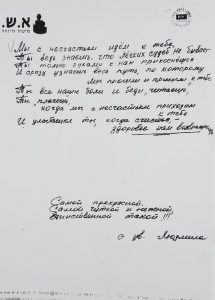 א.ש.
Мы с несчастьем идём к тебе,
Ты ведь знаешь, что лёгких судеб не бывает
Ты только руками к нам прикоснёшься
И сразу узнаешь весь путь, по которому
мы прошли и пришли к тебе
Ты все наши боли и беды читаешь,
Ты плачешь,
когда мы с несчастьем приходим
к тебе
И улыбаешься ты, когда счастье
здоровье нам
Самой прекрасной,
Самой чуткой и нежной
Единственной такой!!!
С ув. Людмила